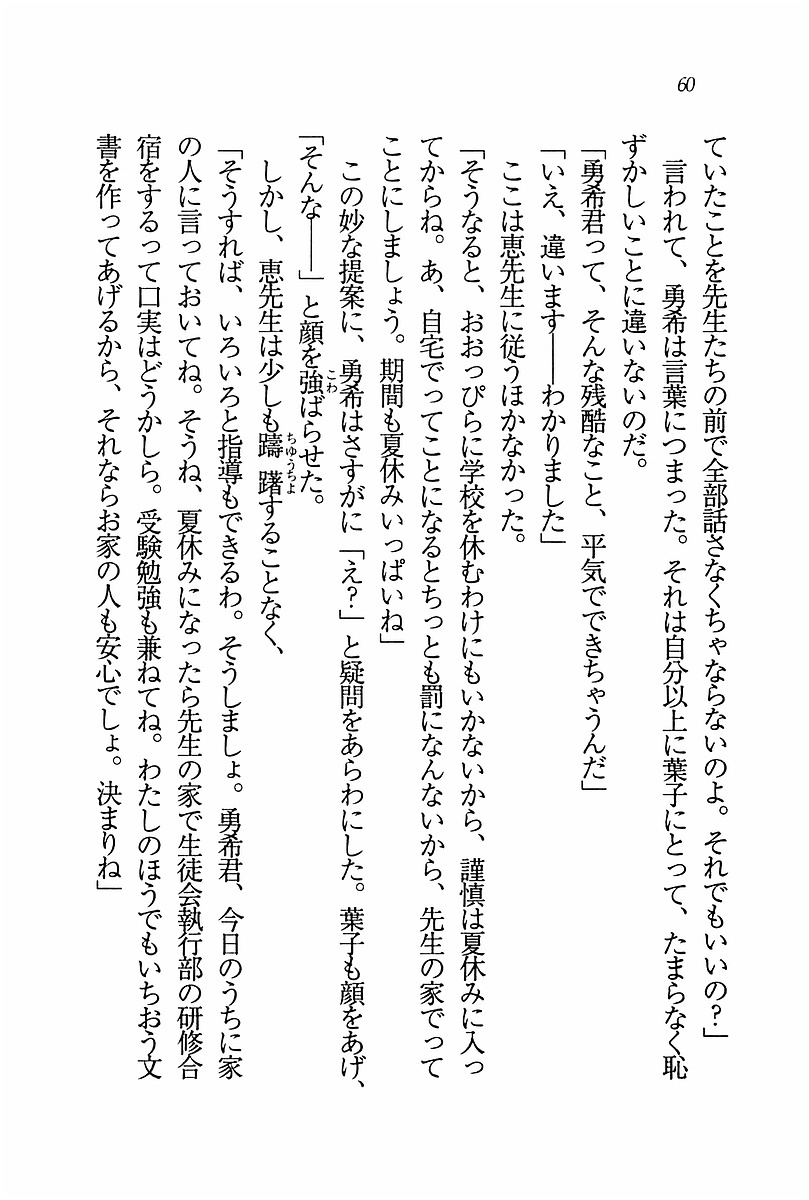 60
ていたことを先生たちの前で全部話さなくちゃならないのよ。それでもいいの？」
言われて、勇希は言葉につまった。それは自分以上に葉子にとって、たまらなく恥
ずかしいことに違いないのだ。
「勇希君って、そんな残酷なこと、平気でできちゃうんだ」
「いえ、違います――わかりました」
ここは恵先生に従うほかなかった。
「そうなると、おおっぴらに学校を休むわけにもいかないから、謹慎は夏休みに入っ
てからね。あ、自宅でってことになるとちっとも罰になんないから、先生の家でって
ことにしましょう。期間も夏休みいっぱいね」
この妙な提案に、勇希はさすがに「え？」と疑問をあらわにした。葉子も顔をあげ、
「そんな――」と顔を強ばらせた。
しかし、恵先生は少しも躊躇することなく、
「そうすれば、いろいろと指導もできるわ。そうしましょ。勇希君、今日のうちに家
の人に言っておいてね。そうね、夏休みになったら先生の家で生徒会執行部の研修合
宿をするって口実はどうかしら。受験勉強も兼ねてね。わたしのほうでもいちおう文
書を作ってあげるから、それならお家の人も安心でしょ。決まりね」